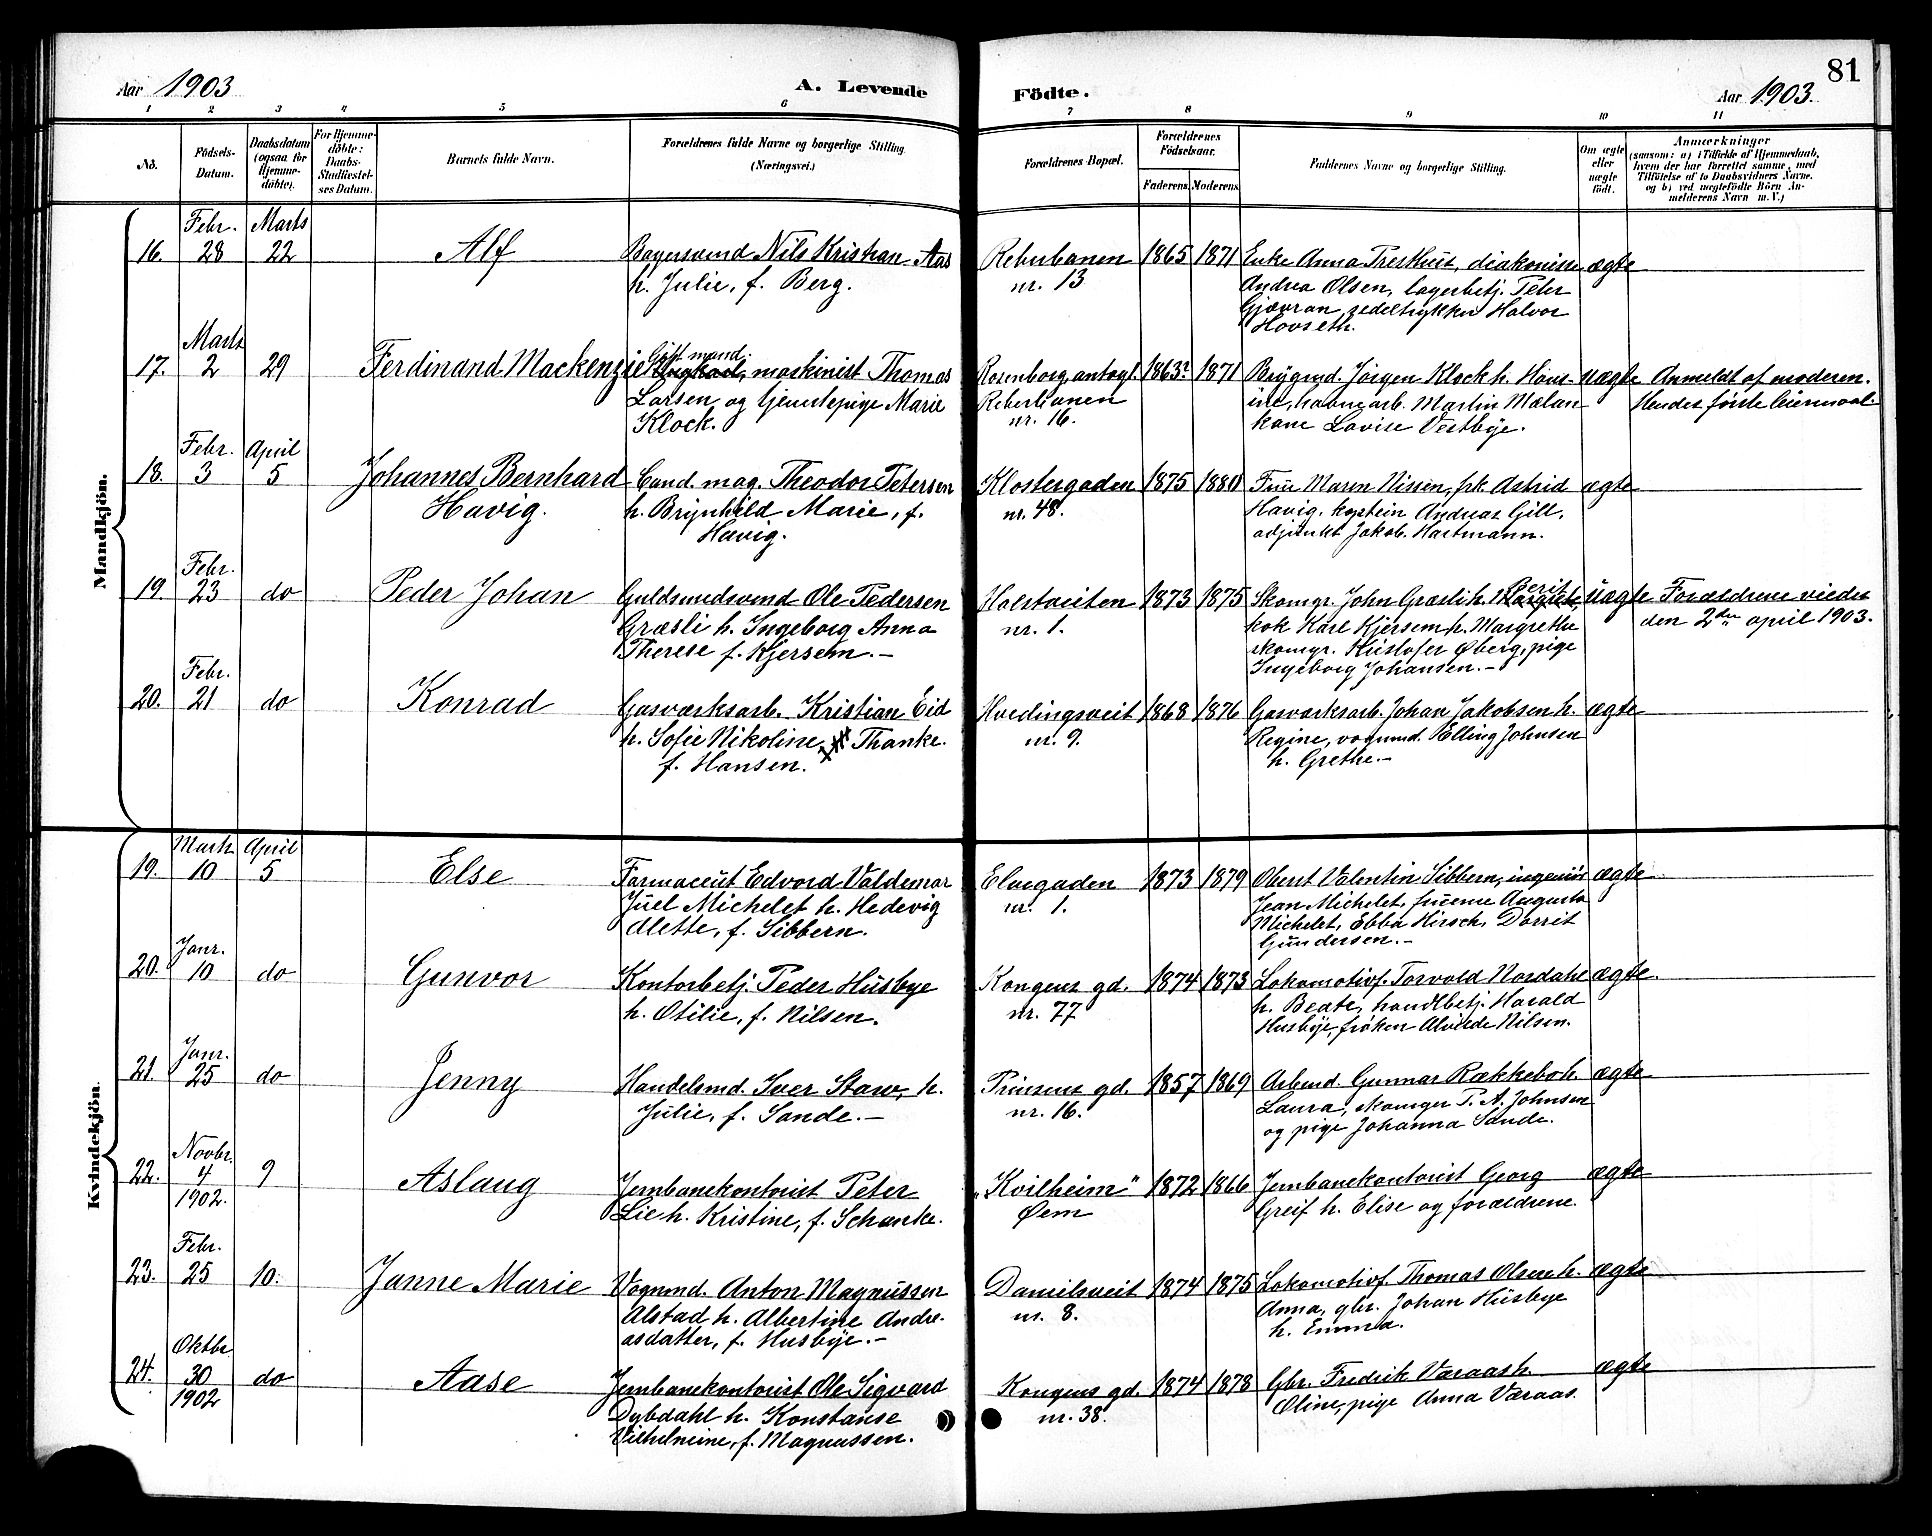 81
Aar 1903
A. Levende
Födte.
Aar 1903.
1 2 3 4 5 6 7 8 9 10 11
No.
Födsels-
Datum.
Daabsdatum
(ogsaa for
Hjemme-
döbte).
For Hjemme-
döbte:
Daabs-
Stadfæstel-
ses Datum.
Barnets fulde Navn.
Forældrenes fulde Navne og borgerlige Stilling.
(Næringsvei.)
Forældrenes Bopæl.
Forældrenes
Födselsaar.
Faderens. Moderens.
Faddernes Navne og borgerlige Stilling.
Om ægte
eller
uægte
födt.
Anmærkninger
(saasom: a) i Tilfælde af Hjemmedaab,
hvem der har forrettet samme, med
Tilföielse af to Daabsvidners Navne.
og b) ved uægtefödte Börn An-
melderens Navn m. V.)
Mandkjön.
16. Febr. 28 Marts 22 Alf
Bagersvend Nils Kristian Aas
h. Julie, f. Berg.
Reberbanen
nr. 13
1865 1871
Enke Anna Presthus, diakonisse
Andrea Olsen, lagerbetj. Peter
Gjævran, sedeltrykker Halvor
Hovseth.
ægte
17. Marts 2 29 Ferdinand Mackenzie
Gift mand.
maskinist Thomas
Larsen og tjenestepige Marie
Klock.
Rosenborg, antogl.
Reberbanen
nr. 16.
1863? 1871
Brygmd. Jörgen Klock h. Hans-
ine, havnearb. Martin Mælan
kone Lovise Vestbye.
uægte
Anmeldt af moderen.
Hendes förste leiermaal.
18. Febr. 3 April 5 Johannes Bernhard
Havig.
Cand. mag. Theodor Petersen
h. Brynhild Marie, f.
Havig.
Klostergaden
nr. 48.
1875 1880
Fru Maren Nissen, frk. Astrid
Havig, kaptein Andreas Gill,
adjunkt Jakob Hartmann.
ægte
19. Febr. 23 do Peder Johan
Guldsmedsvend Ole Pedersen
Græsli h. Ingeborg Anna
Therese f. Kjersem.-
Halstveiten
nr. 1.
1873 1875
Skomgr. John Græsli h. Berit
kok Karl Kjersem h. Margrethe
skomgr. Kristofer Øberg, pige
Ingeborg Johansen.-
uægte
Forældrene viedes
den 2den april 1903.
20. Febr. 21 do Konrad
Gasværksarb. Kristian Eid
h. Sofie Nikoline Thanke.
f. Hansen.
Hvedingsveit
nr. 9.
1868 1876
Gasværksarb. Johan Jakobsen h.
Regine, vognmd. Elling Johnsen
h. Grethe.-
ægte
Kvindekjön.
19. Marts 10 April 5 Else
Farmaceut Edvard Valdemar
Juel Michelet h. Hedevig
Alette, f. Sibbern.
Elvegaden
nr. 1.
1873 1879
Oberst Valentin Sibbern, ingeniör
Jean Michelet, fruerne Augusta
Michelet, Ebba Hirsch, Dorrit
Gundersen.-
ægte
20. Janr. 10 do Gunvor
Kontorbetj. Peder Husbye
h. Otilie, f. Nilsen.
Kongens gd.
nr. 77
1874 1873
Lokomotivf. Torvald Nordahl
h. Beate, handlbetj. Harald
Husbye, fröken Alvilde Nilsen.
ægte.
21. Janr. 25 do Jenny
Handelsmd. Iver Stav, h.
Julie, f. Sande.-
Prinsens gd.
nr. 16.
1857 1869
Arbmd. Gunnar Rækkebo h.
Laura, skomger P. A. Johnsen
og pige Johanna Sande.
ægte
22. Novbr. 4 1902. 9 Aslaug
Jernbanekontorist Peter
Lie h. Kristine, f. Schanke.
"Kvilheim"
Øem
1872 1866
Jernbanekontorist Georg
Greif h. Elise og forældrene.
ægte
23. Febr. 25 10. Janne Marie
Vognmd. Anton Magnussen
Alstad h. Albertine Andre-
asdatter, f. Husbye.-
Danielsveit
nr. 8.
1874 1875
Lokomotivf. Thomas Olsen h.
Anna, gbr. Johan Husbye
h. Emma.
ægte
24. Oktbr. 30 1902 do Aase
Jernbanekontorist Ole Sigvard
Dybdahl h. Konstanse
Vilhelmine, f. Magnussen.
Kongens gd.
nr. 38.
1874 1878
Gbr. Fredrik Væraas h.
Oline, pige Anna Væraas.
ægte